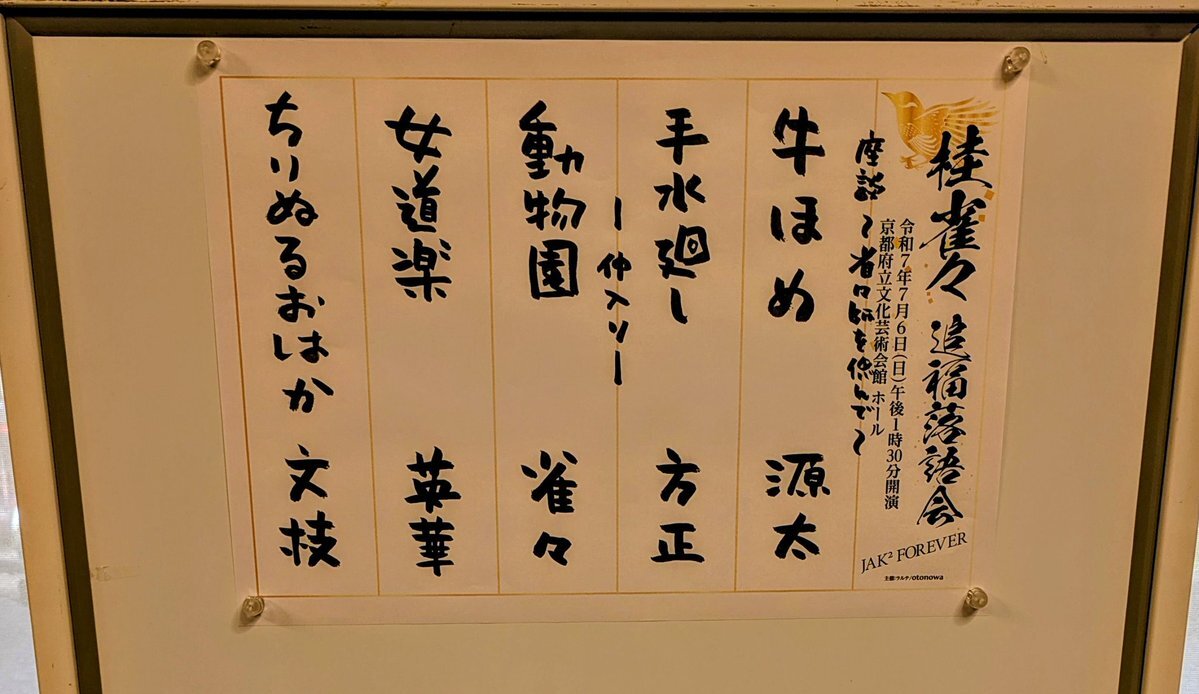 桂雀々 追福落語会
令和7年7月6日(日)午後1時30分開演
京都府立文化芸術会館 ホール
JAK² FOREVER
主催:ラルテ/otonowa
座談 〜雀々師を偲んで〜
牛ほめ 源太
手水廻し 方正
ー仲入リー
動物園 雀々
女道楽 英華
ちりぬるおはか 文枝